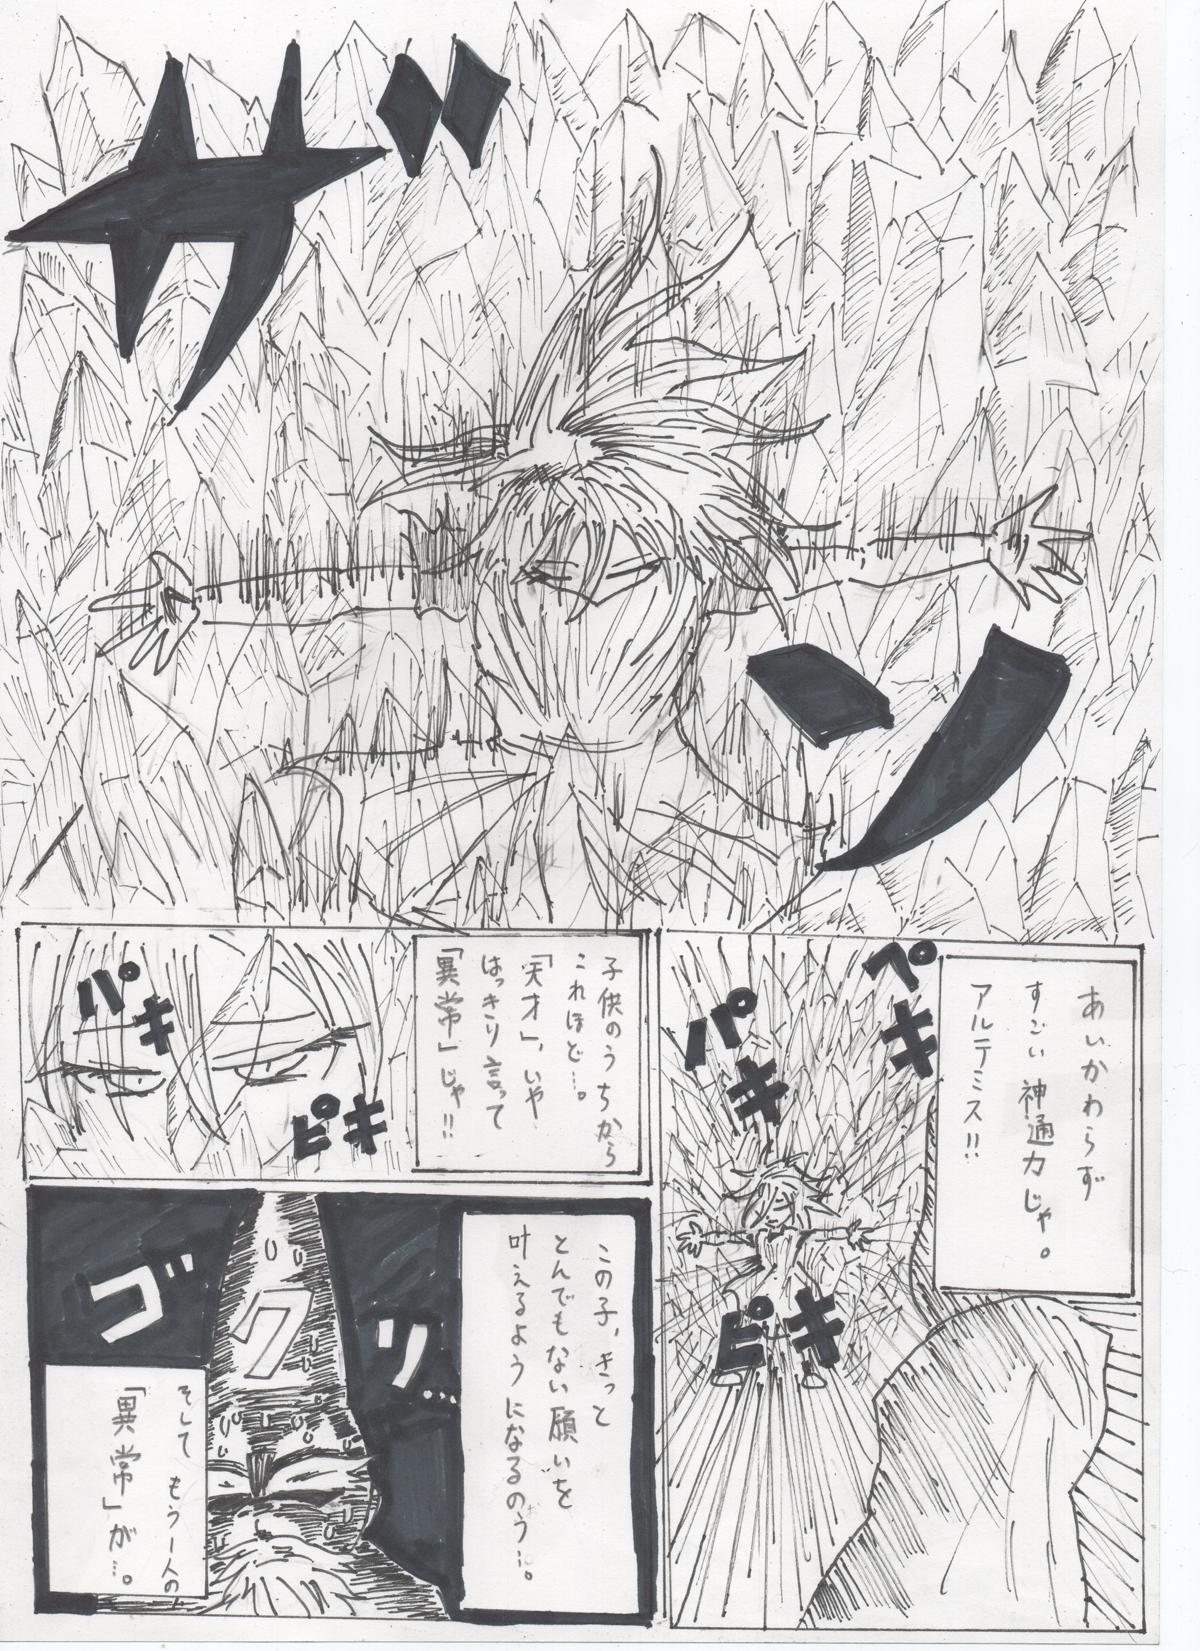 ガン
あいかわらず
すごい神通力じゃ。
アルテミス!!
ペキ
パキ
ピキ
子供のうちから
これほど…。
「天才」、いや
はっきり言って
「異常」じゃ!!
パキ
ピキ
この子、きっと
とんでもない願いを
叶えるようになるのう…。
ゴクリ…
そして もう1人の
「異常」が…。